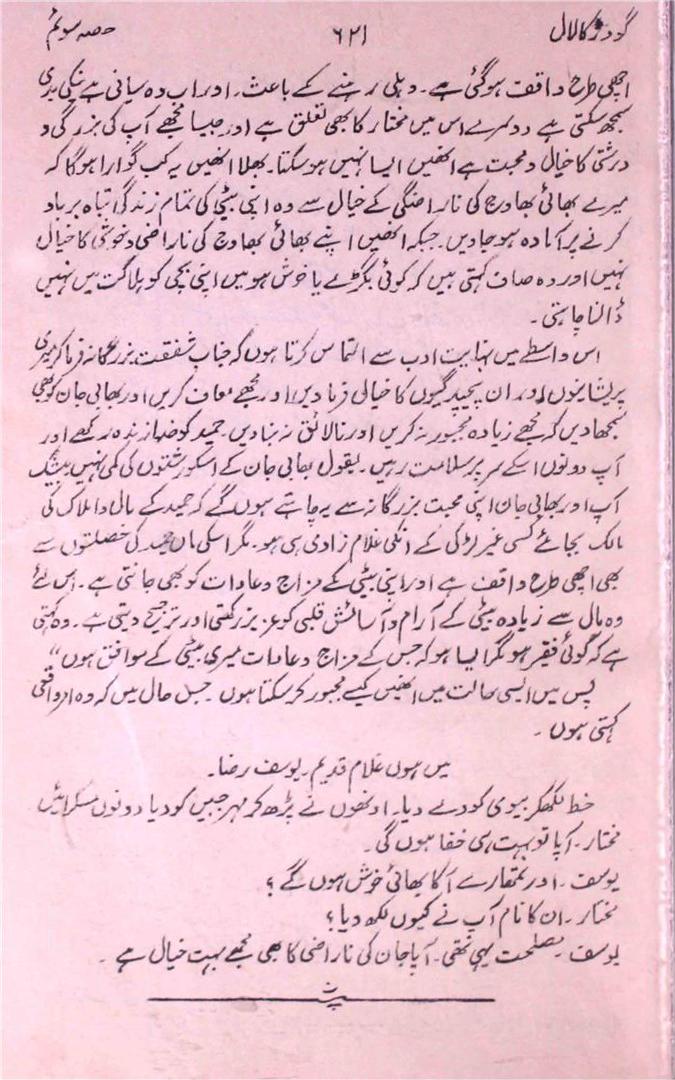 گودڑ کا لال ۶۲۱ حصہ سوئم
اچھی طرح واقف ہوگئی ہے۔ دہلی رہنے کے باعث۔ اور اب وہ سیانی ہے نیکی بدی
سمجھ سکتی ہے دوسرے اس میں مختار کا بھی تعلق ہے اور جیسا مجھے آپ کی بزرگی و
درشتی کا خیال و محبت ہے انھیں ایسا نہیں ہو سکتا۔ بھلا انھیں یہ کب گوارا ہوگا کہ
میرے بھائی بھاوج کی ناراضگی کے خیال سے وہ اپنی بیٹی کی تمام زندگی تباہ برباد
کرنے پر آمادہ ہو جاویں۔ جبکہ انھیں اپنے بھائی بھاوج کی ناراضی و خوشی کا خیال
نہیں اور وہ صاف کہتی ہیں کہ کوئی بگڑے یا خوش ہو میں اپنی بچی کو ہلاکت میں نہیں
ڈالنا چاہتی۔
اس واسطے میں نہایت ادب سے التماس کرتا ہوں کہ جناب شفقت بزرگانہ فرما کر میری
پریشانیوں اور ان پیچیدگیوں کا خیال فرما دیں اور مجھے معاف کریں اور بھابی جان کو بھی
سمجھا دیں کہ مجھے زیادہ مجبور نہ کریں اور نالائق نہ بنا دیں۔ حمید کو خدا زندہ رکھے اور
آپ دونوں اسکے سر پر سلامت رہیں۔ بقول بھابی جان کے اسکو رشتوں کی کمی نہیں بیشک
آپ اور بھابی جان اپنی محبت بزرگانہ سے یہ چاہتے ہوں گے کہ حمید کے مال و املاک کی
مالک بجائے کسی غیر لڑکی کے انکی غلام زادی ہی ہو۔ مگر اسکی ماں حمید کی خصلتوں سے
بھی اچھی طرح واقف ہے اور اپنی بیٹی کے مزاج و عادات کو بھی جانتی ہے۔ اس لئے
وہ مال سے زیادہ بیٹی کے آرام و آسائش قلبی کو عزیز رکھتی اور ترجیح دیتی ہے۔ وہ کہتی
ہے کہ کوئی فقیر ہو مگر ایسا ہو کہ جس کے مزاج و عادات میری بیٹی کے موافق ہوں"
پس میں ایسی حالت میں انھیں کیسے مجبور کر سکتا ہوں۔ جس حال میں کہ وہ امر واقعی
کہتی ہوں۔
میں ہوں غلام قدیم۔ یوسف رضا۔
خط لکھکر بیوی کو دے دیا۔ اونھوں نے پڑھ کر مہر جبیں کو دیا دونوں مسکرائیں
مختار۔ آپا تو بہت ہی خفا ہوں گی۔
یوسف۔ اور تمھارے آکا بھائی خوش ہوں گے؟
مختار۔ ان کا نام آپ نے کیوں لکھ دیا؟
یوسف۔ مصلحت یہی تھی۔ آپا جان کی ناراضی کا بھی مجھے بہت خیال ہے۔